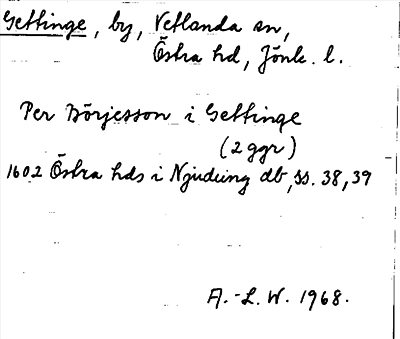 Gettinge, by, Vetlanda sn,
Östra hd, Jönk. l.
Per Börjesson i Gettinge
(2 ggr)
1602 Östra hds i Njudung db, ss. 38, 39
A.-L. W. 1968.